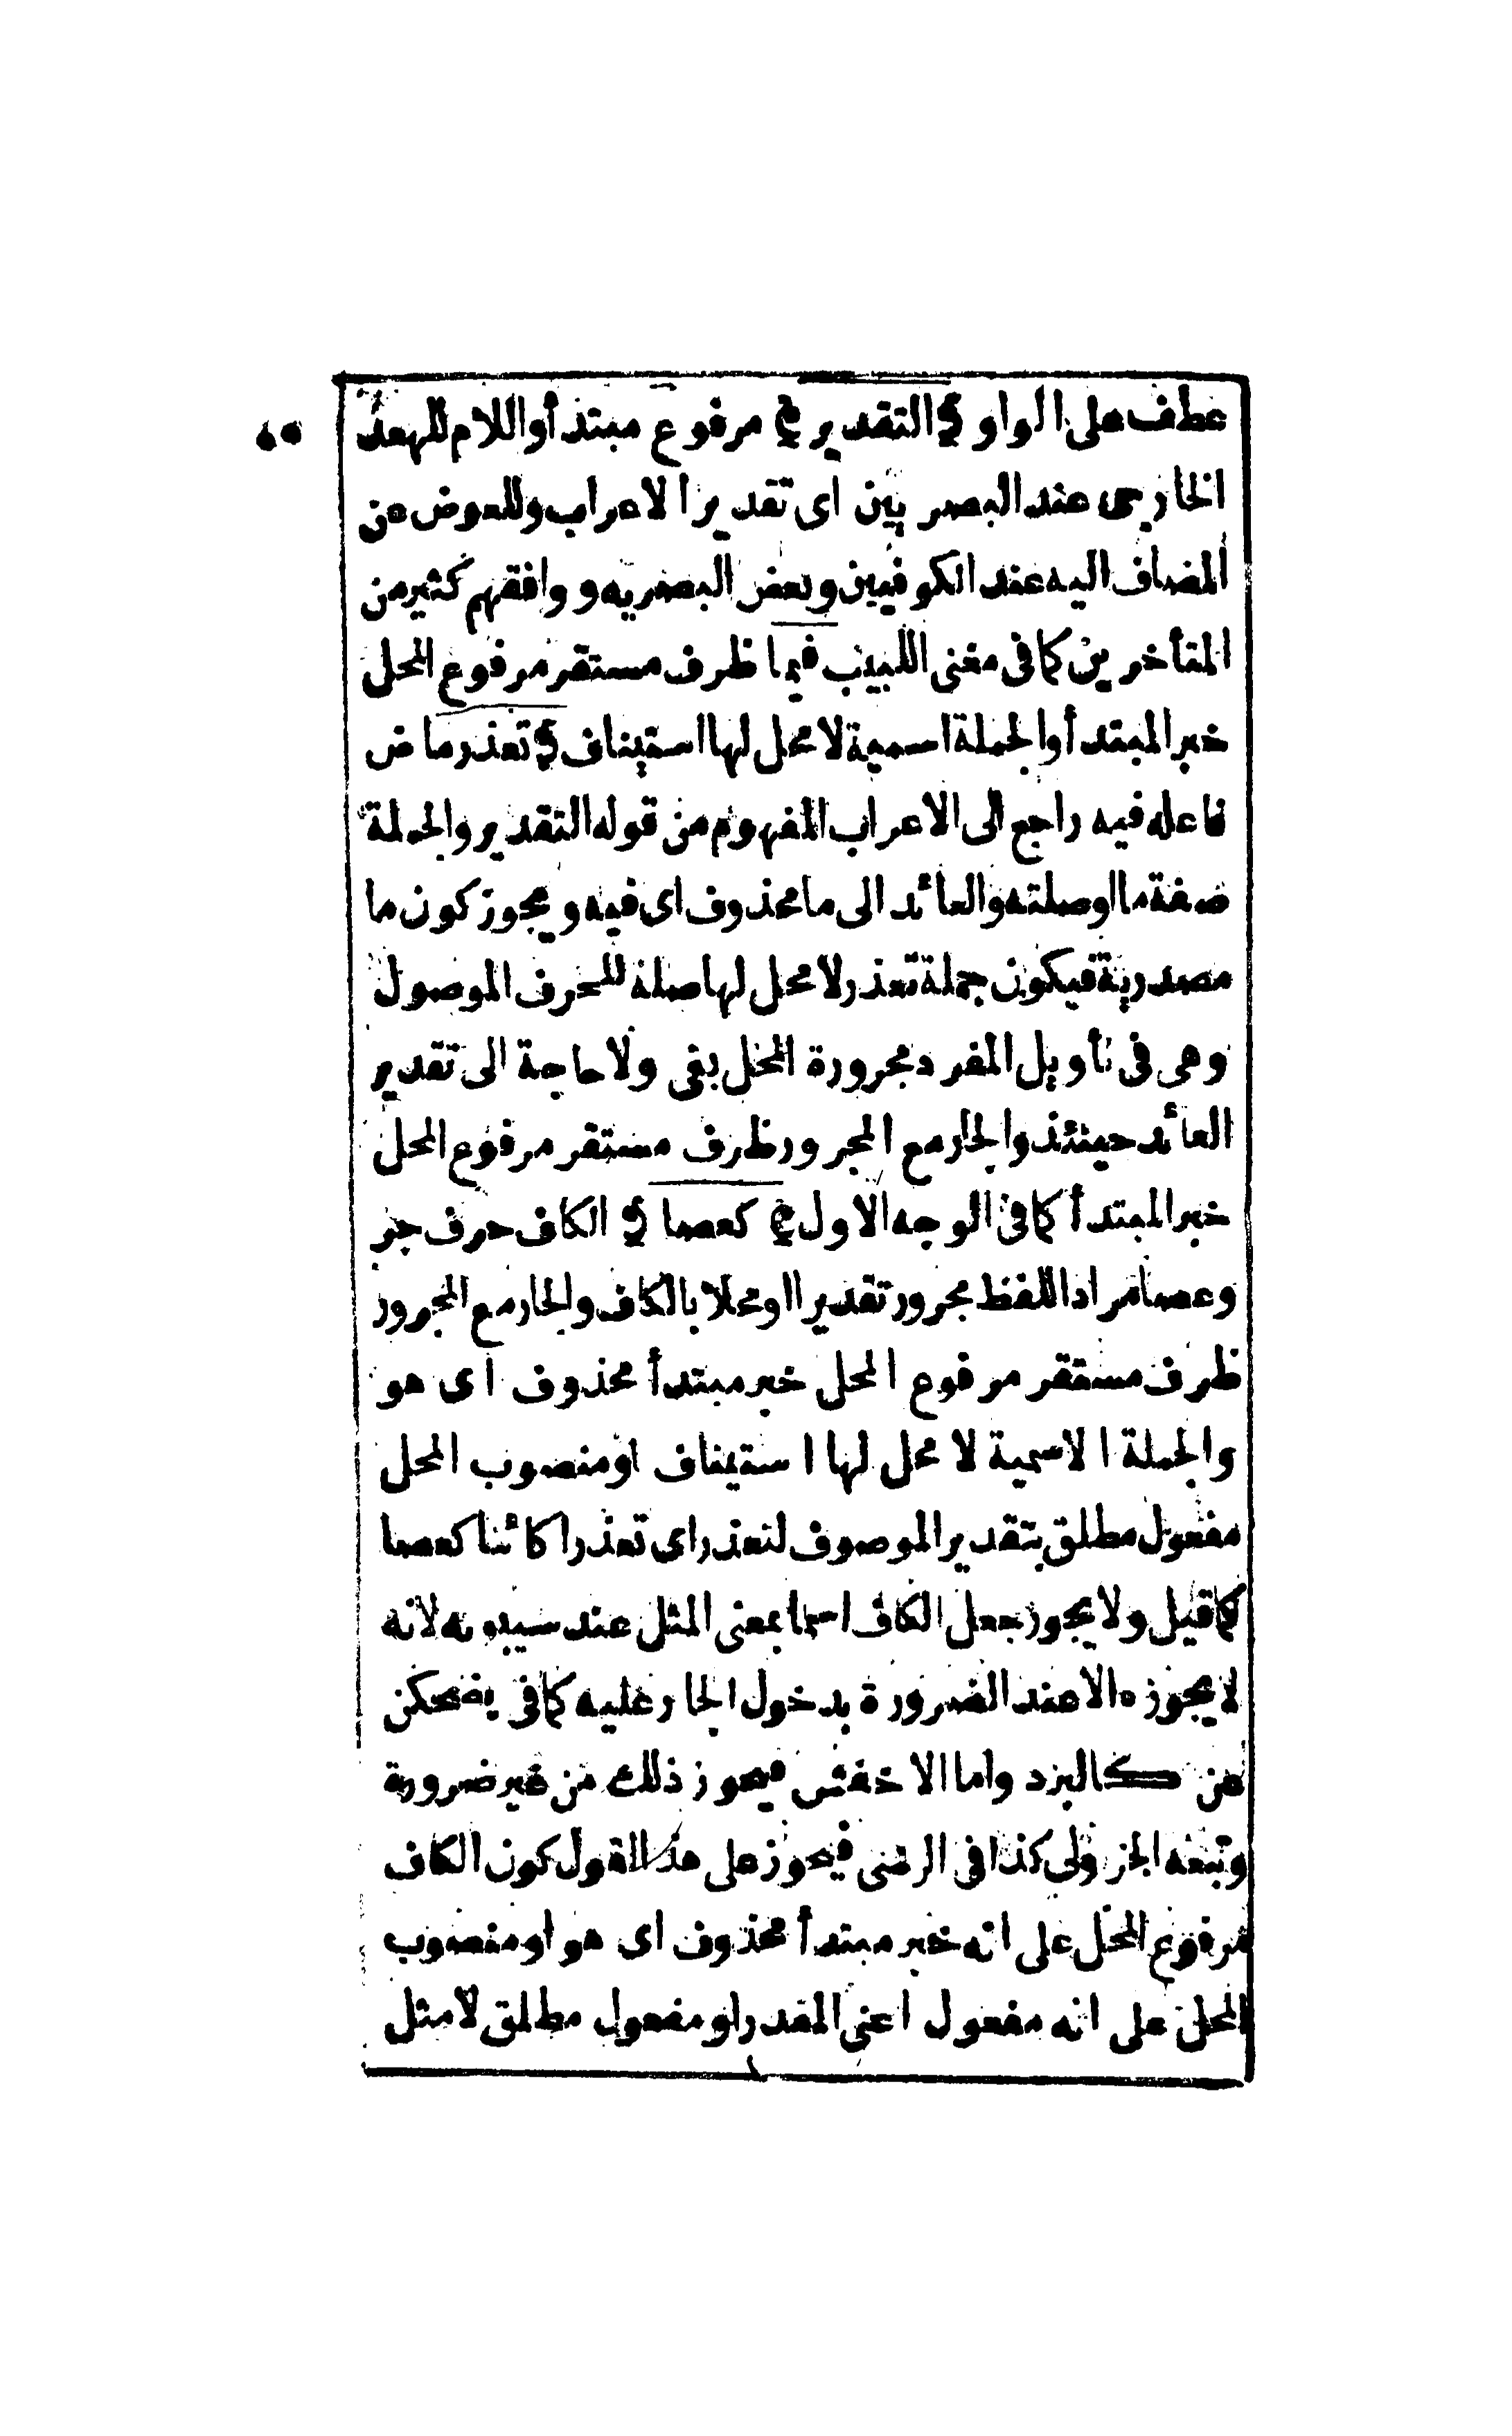 عطف على الواو ﴿ التقدير ﴾ مرفوع مبتدأ واللام للعهد
الخارجى عند البصريين اى تقدير الاعراب وللعوض عن
المضاف اليه عند الكوفيين وبعض البصريه ووافقهم كثير من
المتأخرين كما فى مغنى اللبيب فيما ظرف مستقر مرفوع المحل
خبر المبتدأ والجملة اسمية لا محل لها استيناف ﴿ تعذر ماض
فاعله فيه راجع الى الاعراب المفهوم من قوله التقدير والجملة
صفة ما اوصلته والعائد الى ما محذوف اى فيه ويجوز كون ما
مصدرية فيكون جملة تعذر لا محل لها صلة للحرف الموصول
وهى فى تأويل المفرد مجرورة المحل بفى ولا حاجة الى تقدير
العائد حينئذ والجار مع المجرور ظرف مستقر مرفوع المحل
خبر المبتدأ كما فى الوجه الاول ﴾ كعصا ﴿ الكاف حرف جر
وعصا مراد اللفظ مجرور تقديرا او محلا بالكاف والجار مع المجرور
ظرف مستقر مرفوع المحل خبر مبتدأ محذوف اى هو
والجملة الاسمية لا محل لها استيناف او منصوب المحل
مفعول مطلق بتقدير الموصوف لتعذر اى تعذرا كائنا كعصا
كما قيل ولا يجوز جعل الكاف اسما بمعنى المثل عند سيبويه لانه
لا يجوزه الا عند الضرورة بدخول الجار عليه كما فى يضحكن
عن كالبرد واما الاخفش فيجوز ذلك من غير ضرورة
وتبعه الجزولى كذا فى الرضى فيجوز على هذا القول كون الكاف
مرفوع المحل على انه خبر مبتدأ محذوف اى هو او منصوب
المحل على انه مفعول اعنى المقدر او مفعول مطلق لا مثل